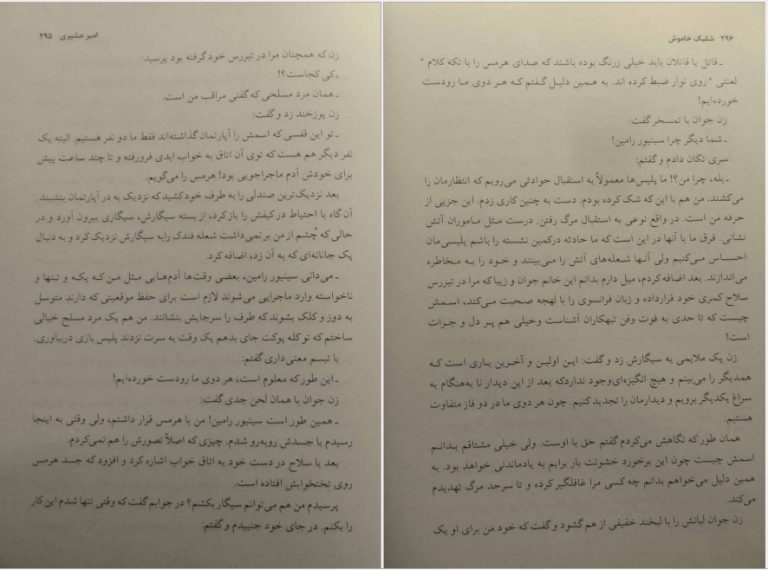 امیر عشیری ۲۹۵
زن که همچنان مرا در تیررس خود گرفته بود پرسید:
ـ کی کجاست؟!
ـ همان مرد مسلحی که گفتی مراقب من است.
زن پوزخند زد و گفت:
ـ تو این قفسی که اسمش را آپارتمان گذاشته‌اند فقط ما دو نفر هستیم. البته یک
نفر دیگر هم هست که توی آن اتاق به خواب ابدی فرورفته و تا چند ساعت پیش
برای خودش آدم ماجراجویی بود! هرمس را می‌گویم.
بعد نزدیک‌ترین صندلی را به طرف خود کشید که نزدیک به در آپارتمان بنشیند.
آن گاه با احتیاط در کیفش را باز کرده از بسته سیگارش، سیگاری بیرون آورد و در
حالی که چشم از من بر نمی‌داشت شعله فندک را به سیگارش نزدیک کرد و به دنبال
پک جانانه‌ای که به آن زد، اضافه کرد.
ـ می‌دانی سینیور رامین، بعضی وقت‌ها آدم‌هایی مثل من که یکه و تنها و
ناخواسته وارد ماجرایی می‌شوند لازم است برای حفظ موقعیتی که دارند متوسل
به دوز و کلک بشوند که طرف را سرجایش بنشانند. من هم یک مرد مسلح خیالی
ساختم که تو کله پوکت جای بدهم یک وقت به سرت نزدند پلیس بازی دربیاوری.
با تبسم معنی‌داری گفتم:
ـ این طور که معلوم است، هر دوی ما رودست خورده‌ایم!
زن جوان با همان لحن جدی گفت:
ـ همین طور است سینیور رامین! من با هرمس قرار داشتم، ولی وقتی به اینجا
رسیدم با جسدش روبه‌رو شدم. چیزی که اصلاً تصورش را هم نمی‌کردم.
بعد با سلاح در دست خود به اتاق خواب اشاره کرد و افزود که جسد هرمس
روی تختخوابش افتاده است.
پرسیدم من هم می‌توانم سیگار بکشم؟ در جوابم گفت که وقتی تنها شدم این کار
را بکنم. در جای خود جنبیدم و گفتم:
۲۹۶ شلیک خاموش
ـ قاتل یا قاتلان باید خیلی زرنگ بوده باشند که صدای هرمس را با تکه کلام "
لعنتی " روی نوار ضبط کرده اند. به همین دلیل گفتم که هر دوی ما رودست
خورده‌ایم!
زن جوان با تمسخر گفت:
ـ شما دیگر چرا سینیور رامین!
سری تکان دادم و گفتم:
ـ بله، چرا من؟! ما پلیس‌ها معمولاً به استقبال حوادثی می‌رویم که انتظارمان را
می‌کشند. من هم با این که شک کرده بودم. دست به چنین کاری زدم. این جزیی از
حرفه من است. در واقع نوعی به استقبال مرگ رفتن. درست مثل ماموران آتش
نشانی. فرق ما با آنها در این است که ما حادثه درکمین نشسته را باشم پلیسی‌مان
احساس می‌کنیم ولی آنها شعله‌های آتش را می‌بینند و خود را به مخاطره
می‌اندازند. بعد اضافه کردم، میل دارم بدانم این خانم جوان و زیبا که مرا در تیررس
سلاح کمری خود قرارداده و زبان فرانسوی را با لهجه صحبت می‌کند، اسمش
چیست که تا حدی به فوت وفن تبهکاران آشناست وخیلی هم پر دل و جرات
است!
زن پک ملایمی به سیگارش زد و گفت: این اولین و آخرین باری است که
همدیگر را می‌بینم و هیچ انگیزه‌ای وجود نداردکه بعد از این دیدار نا به‌هنگام به
سراغ یکدیگر برویم و دیدارمان را تجدید کنیم. چون هر دوی ما در دو فاز متفاوت
هستیم.
همان طور که نگاهش می‌کردم گفتم حق با اوست. ولی خیلی مشتاقم بدانم
اسمش چیست چون این برخورد خشونت بار برایم به یادماندنی خواهد بود. به
همین دلیل می‌خواهم بدانم چه کسی مرا غافلگیر کرده و تا سرحد مرگ تهدیدم
می‌کند.
زن جوان لبانش را با لبخند خفیفی از هم گشود و گفت که خود من برای او یک